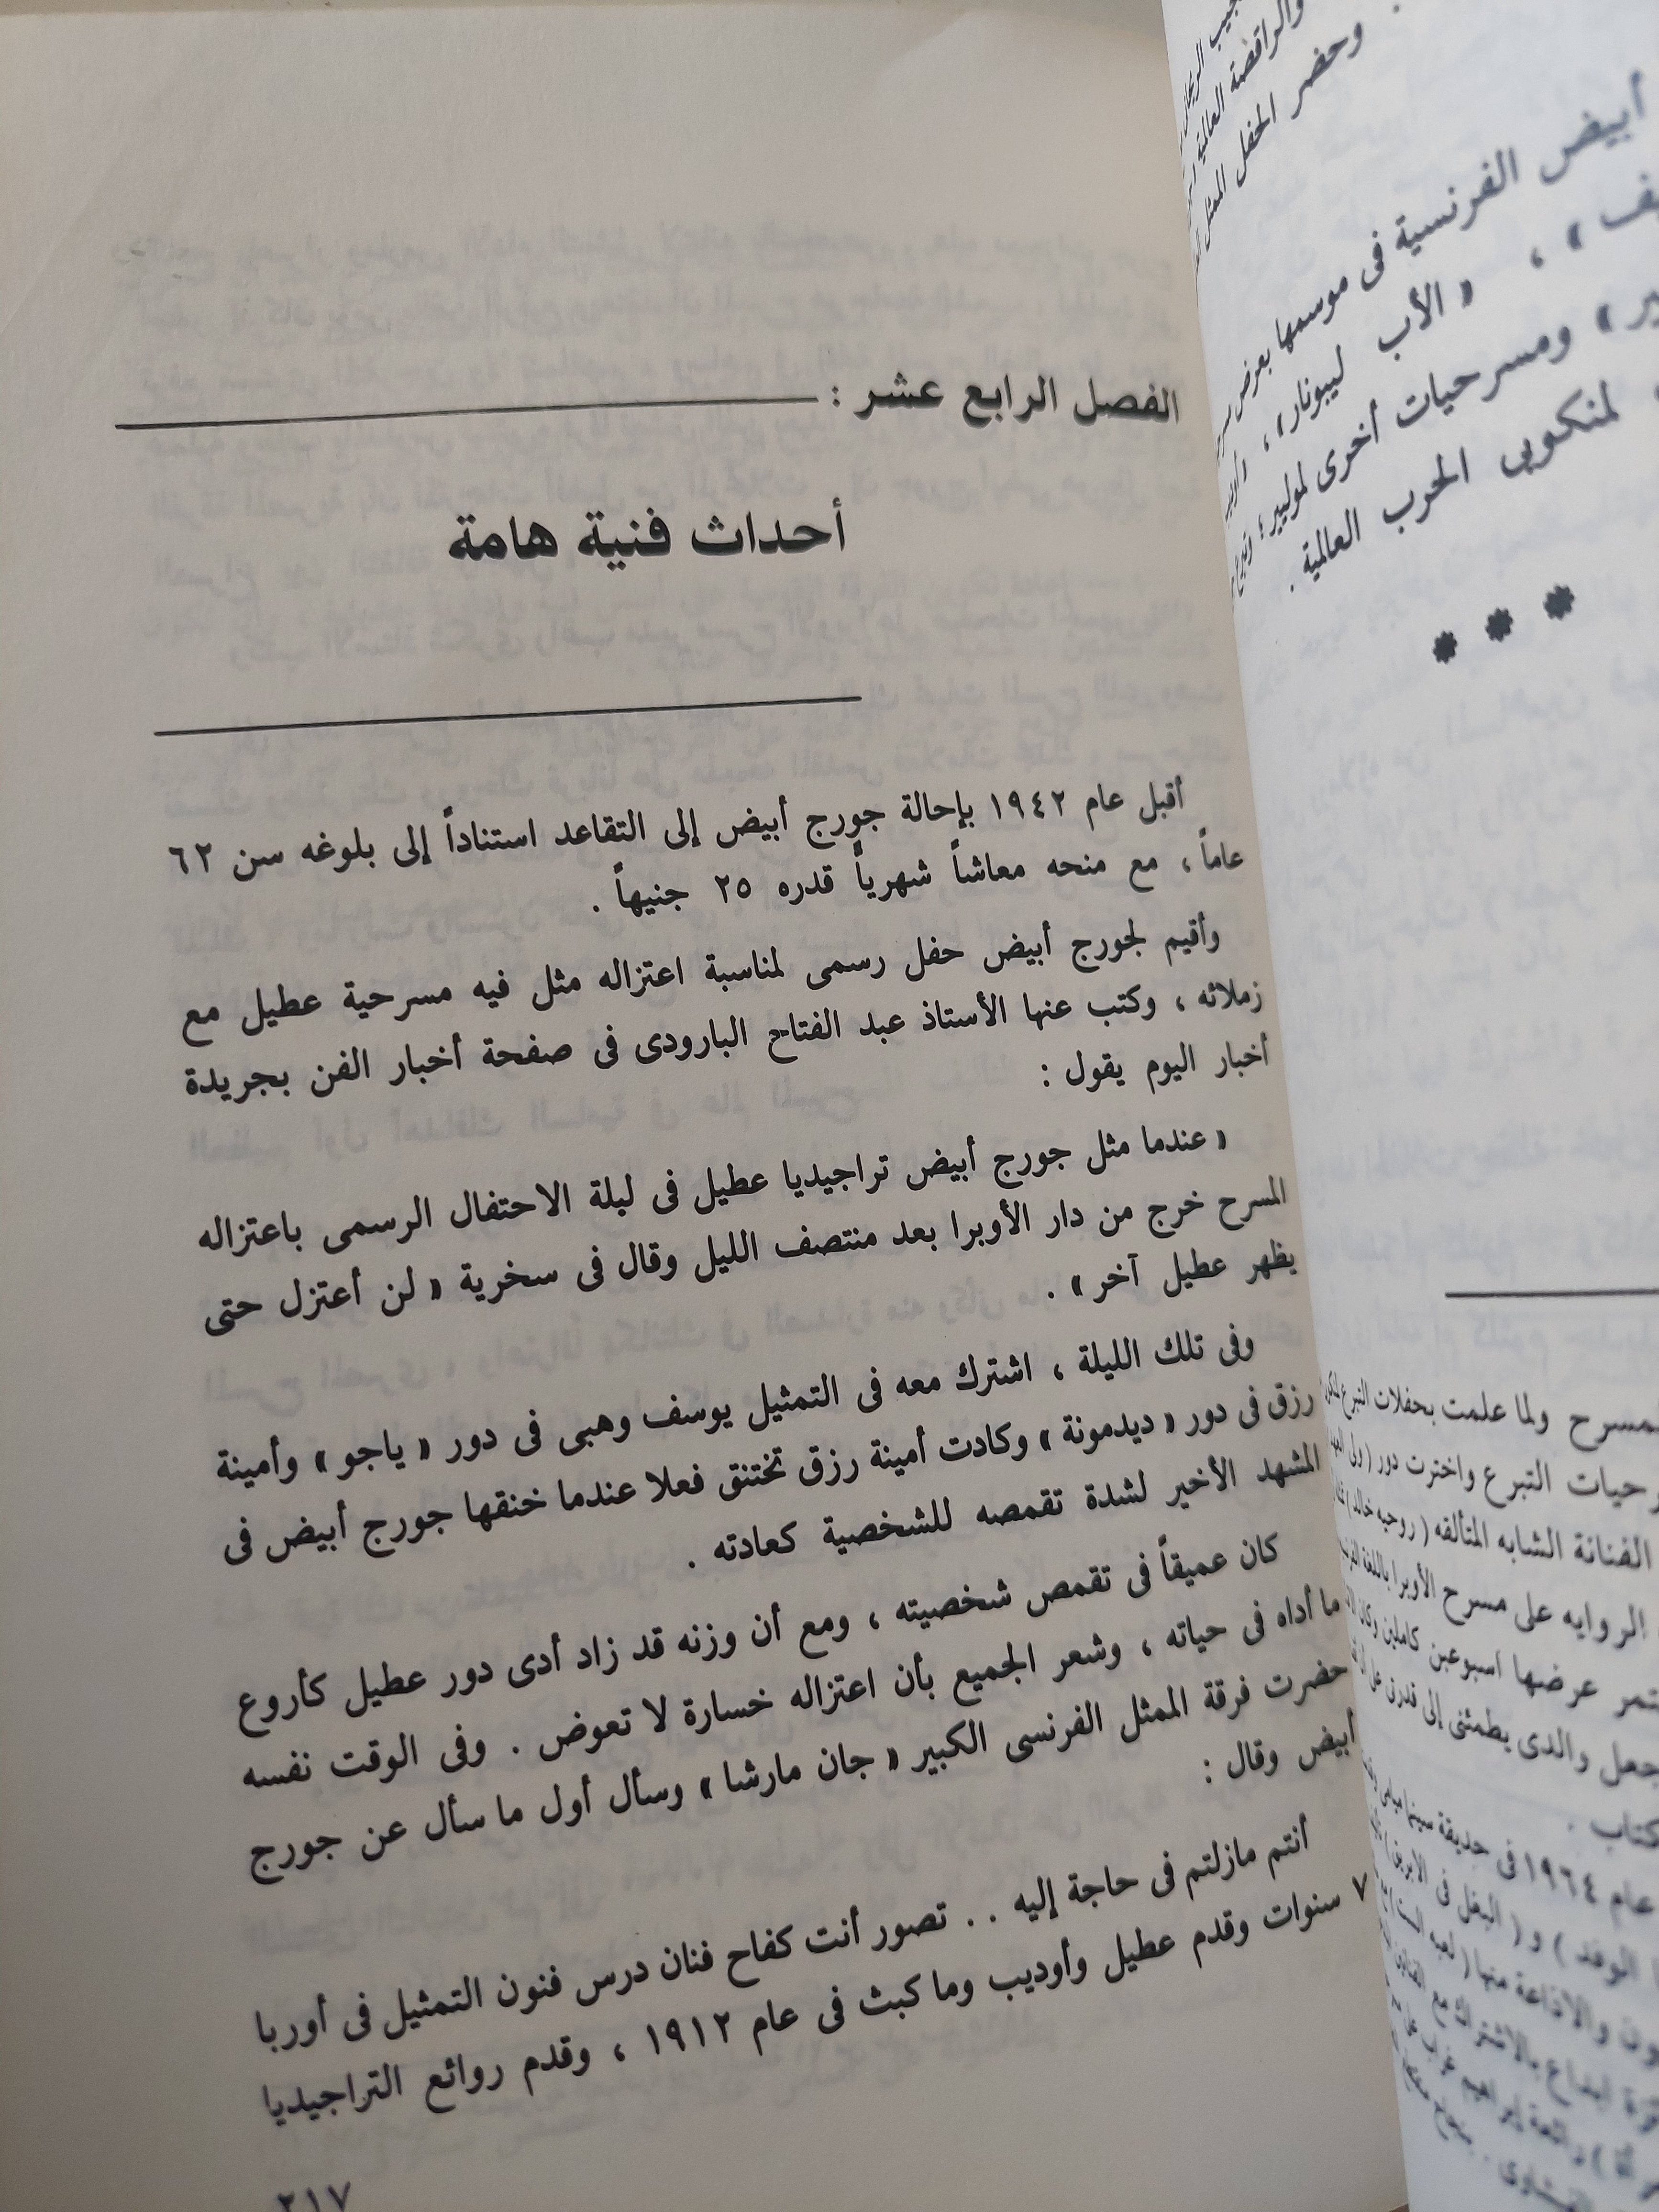 الفصل الرابع عشر :
أحداث فنية هامة
أقبل عام ١٩٤٢ بإحالة جورج أبيض إلى التقاعد استناداً إلى بلوغه سن ٦٢
عاماً ، مع منحه معاشاً شهرياً قدره ٢٥ جنيهاً .
وأقيم لجورج أبيض حفل رسمى لمناسبة اعتزاله مثل فيه مسرحية عطيل مع
زملائه ، وكتب عنها الأستاذ عبد الفتاح البارودى فى صفحة أخبار الفن بجريدة
أخبار اليوم يقول :
« عندما مثل جورج أبيض تراجيديا عطيل فى ليلة الاحتفال الرسمى باعتزاله
المسرح خرج من دار الأوبرا بعد منتصف الليل وقال فى سخرية « لن أعتزل حتى
يظهر عطيل آخر » .
وفى تلك الليلة ، اشترك معه فى التمثيل يوسف وهبى فى دور « ياجو » وأمينة
رزق فى دور « ديدمونة » وكادت أمينة رزق تختنق فعلا عندما خنقها جورج أبيض فى
المشهد الأخير لشدة تقمصه للشخصية كعادته .
كان عميقاً فى تقمص شخصيته ، ومع أن وزنه قد زاد أدى دور عطيل كأروع
ما أداه فى حياته ، وشعر الجميع بأن اعتزاله خسارة لا تعوض . وفى الوقت نفسه
حضرت فرقة الممثل الفرنسى الكبير « جان مارشا » وسأل أول ما سأل عن جورج
أبيض وقال :
أنتم مازلتم فى حاجة إليه . . تصور أنت كفاح فنان درس فنون التمثيل فى أوربا
٧ سنوات وقدم عطيل وأوديب وماكبث فى عام ١٩١٢ ، وقدم روائع التراجيديا
٢١٧
والراقصة العالمية
وحضر الحفل الممثل
أبيض الفرنسية فى موسمها بعرض
« الأب ليبونار » ،
ومسرحيات أخرى لموليير ؛
لمنكوبى الحرب العالمية .
* * *
ولما علمت بحفلات التبرع
التبرع واخترت دور ( ولى
الفنانة الشابه المتألقه ( روحيه خالد )
الروايه على مسرح الأوبرا باللغة
عرضها اسبوعين كاملين وكان
جعل والدى يطمئنى إلى قدرتى على
كتاب .
عام ١٩٦٤ فى حديقة سينما
الوفد ) و ( البخل فى الابريق )
والاذاعة منها ( لعبه الست )
بالاشتراك مع الفنان